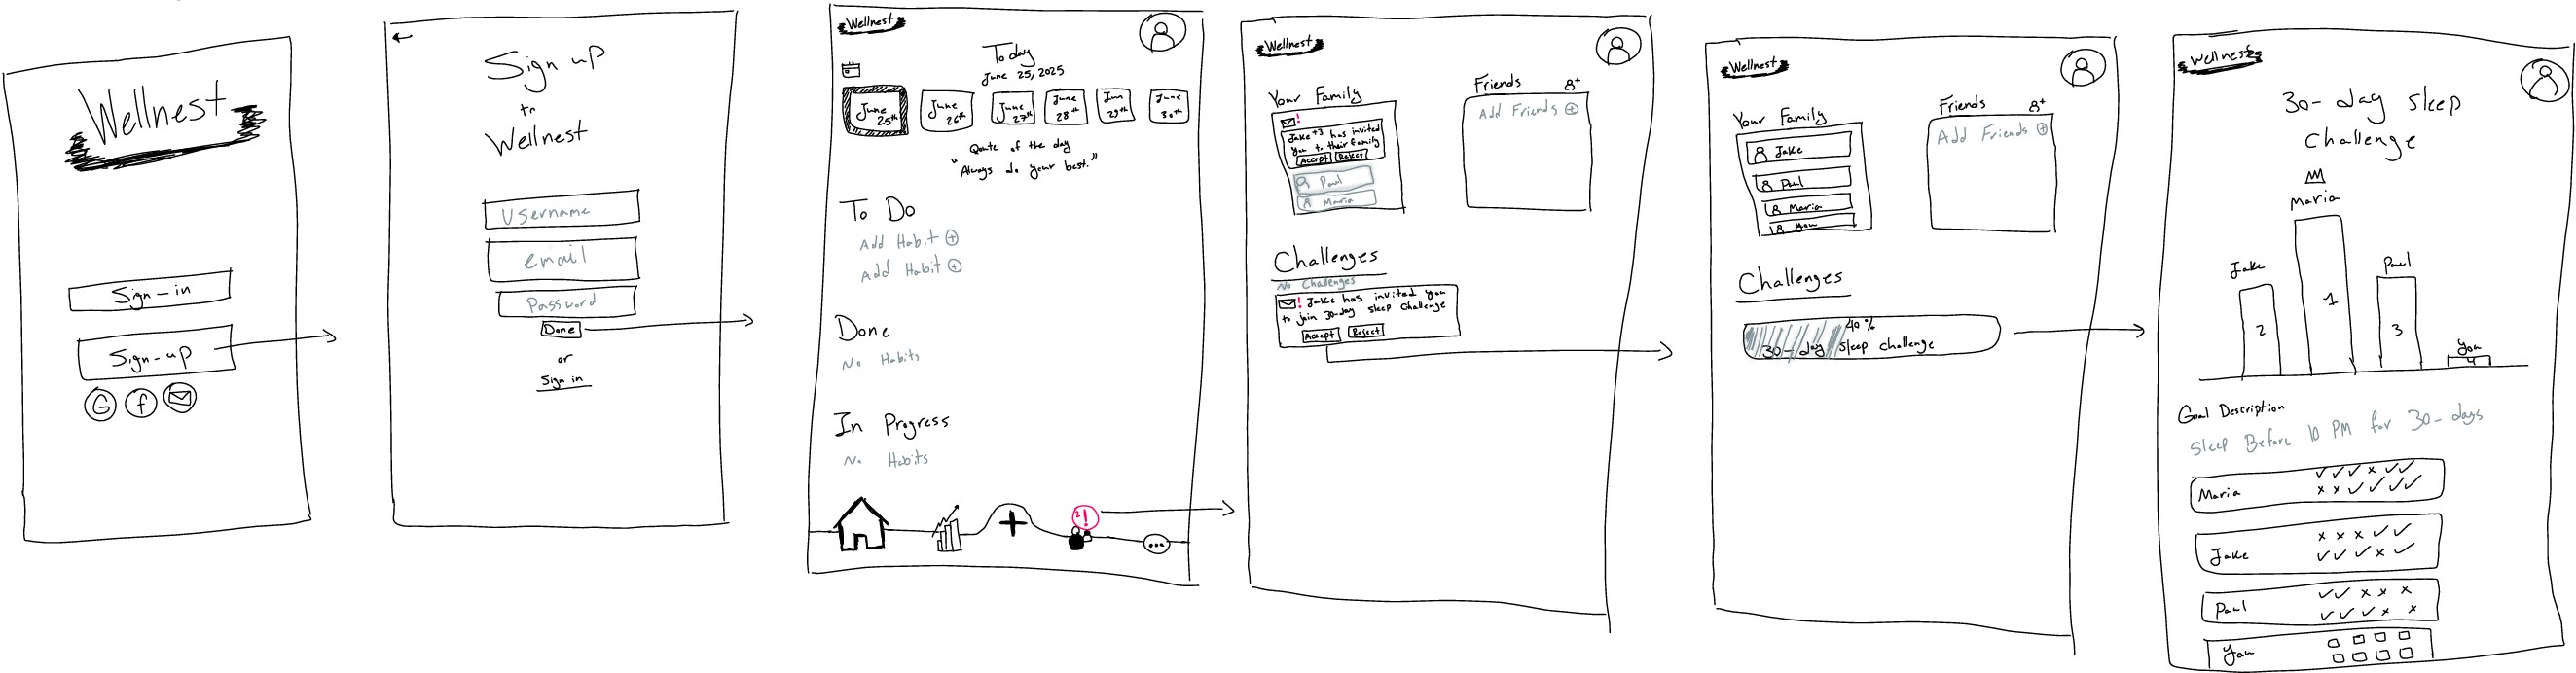 Wellnest
Sign-in
Sign-up
G f
Sign up
to
Wellnest
Username
email
Password
Done
or
Sign in
Wellnest
Today
June 25, 2025
June 25th
June 26th
June 27th
June 28th
Jun 29th
June 30th
Qoute of the day
"Always do your best."
To Do
Add Habit +
Add Habit +
Done
No Habits
In Progress
No Habits
+
2!
Wellnest
Your Family
!
Jake +3 has invited
you to their family
Accept Reject
Paul
Maria
Friends
Add Friends +
Challenges
No Challenges
! Jake has invited you
to join 30-day sleep challenge
Accept Reject
Wellnest
Your Family
Jake
Paul
Maria
You
Friends
Add Friends +
Challenges
40%
30-day sleep challenge
Wellnest
30-day sleep
Challenge
Maria
1
Jake
2
Paul
3
You
4
Goal Description
Sleep Before 10 PM for 30-days
Maria
✓ ✓ ✓ x ✓ ✓
x x ✓ ✓ ✓ ✓
Jake
x x x ✓ ✓
✓ ✓ ✓ x ✓
Paul
✓ ✓ x x x
✓ ✓ ✓ x x
You